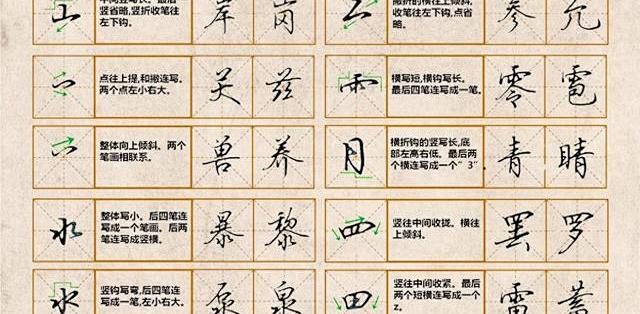 山
中间竖写长。最后
竖省略,竖折收笔往
左下钩。
岸 岗
撇折的横往上倾斜,
收笔往左下点,点省
略。
参 允
点往上提,和撇连写。
两个点左小右大。
关 兹
横写短,横钩写长。
最后四笔连写成一笔。
零 雹
整体向上倾斜。两个
笔画相联系。
兽 养
月
横折钩的竖写长,底
部左高右低。最后两
个横连写成一个"3"。
青 睛
水
整体写小。后四笔连
写成一个笔画。后两
笔连写成竖横。
暴 黎
四
竖往中间收拢。横往
上倾斜。
罢 罗
水
竖钩写弯,后四笔连
写成一笔,左小右大。
泵 泉
田
竖往中间收紧。最后
两个短横连写成一个
z。
雷 蓄